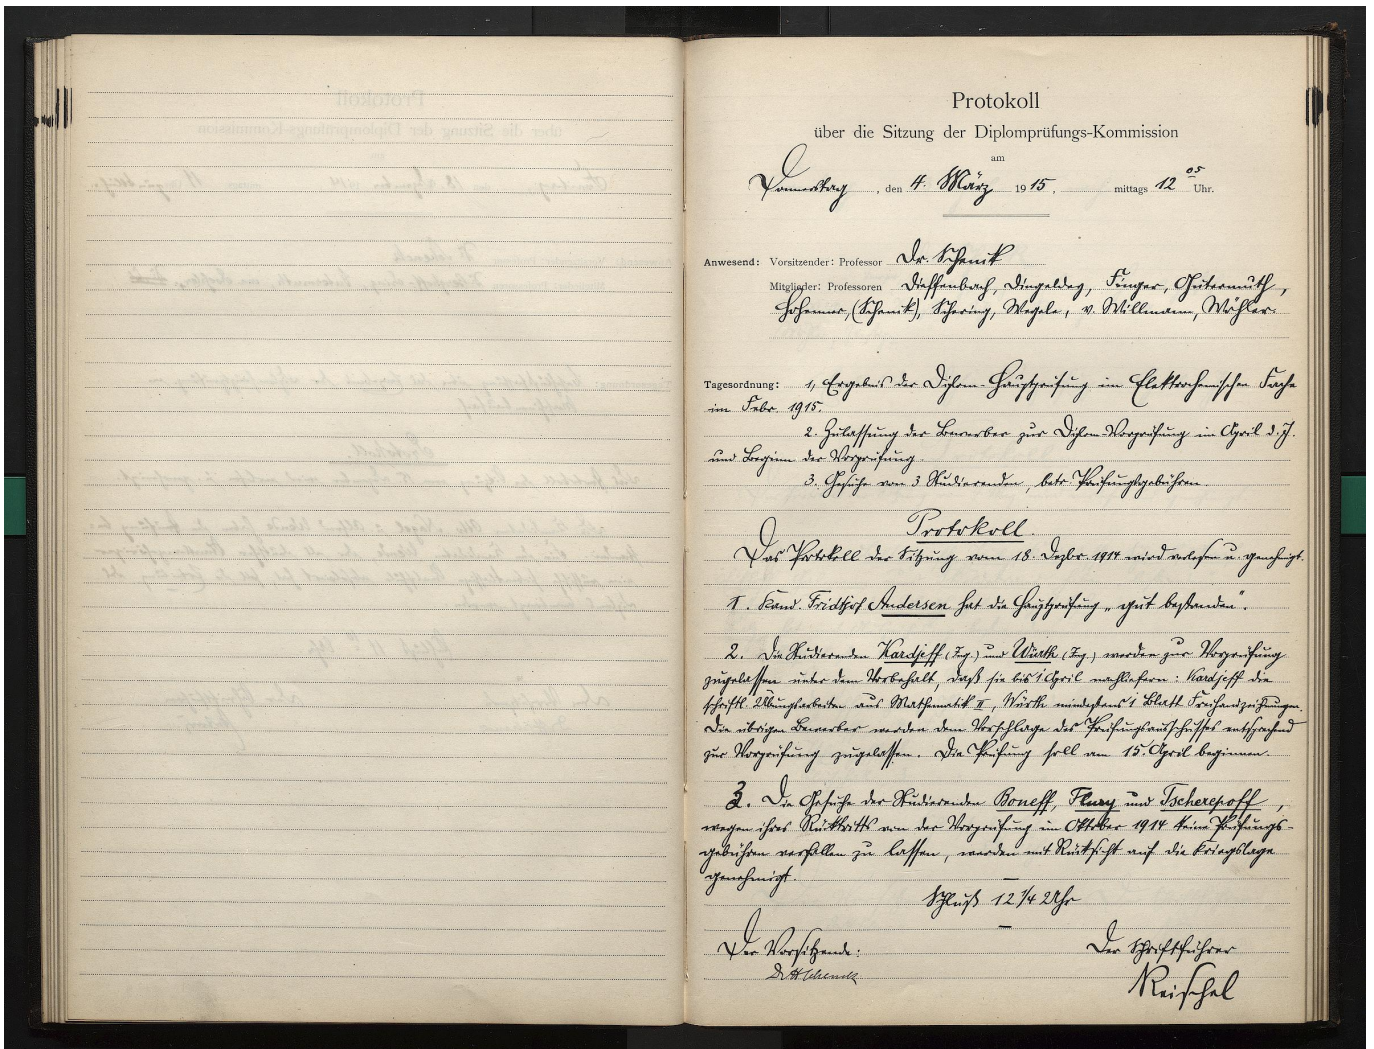 Protokoll
über die Sitzung der Diplomprüfungs-Kommission
am
Donnerstag, den 4. März 1915, mittags 12 05 Uhr.
Anwesend: Vorsitzender: Professor Dr. Schenck
Mitglieder: Professoren Dieffenbach, Dingeldey, Finger, Gutermuth,
Hohenner, (Schenck), Schering, Wegele, v. Willmann, Wöhler.
Tagesordnung: 1, Ergebnis der Diplom-Hauptprüfung im Elektrochemischen Fache
im Febr. 1915.
2. Zulassung der Bewerber zur Diplom-Vorprüfung im April d. J.
und Beginn der Vorprüfung.
3. Gesuche von 3 Studierenden, betr. Prüfungsgebühren.
Protokoll.
Das Protokoll der Sitzung vom 18. Dezbr. 1914 wird verlesen u. genehmigt.
1. Kand. Fridthjof Andersen hat die Hauptprüfung „gut bestanden".
2. Die Studierenden Kardjeff (Ing.) und Würth (Ing.) werden zur Vorprüfung
zugelassen unter dem Vorbehalt, daß sie bis 1 April nachliefern: Kardjeff die
schriftl. Übungsarbeiten aus Mathematik II, Würth mindestens 1 Blatt Freihandzeichnungen.
Die übrigen Bewerber werden dem Vorschlage des Prüfungsausschusses entsprechend
zur Vorprüfung zugelassen. Die Prüfung soll am 15. April beginnen.
3. Die Gesuche der Studierenden Boneff, Flury und Tscherepoff,
wegen ihres Rücktritts von der Vorprüfung im Oktober 1914 keine Prüfungs-
gebühren verfallen zu lassen, werden mit Rücksicht auf die Kriegslage
genehmigt.
Schluß 12 1/4 Uhr
Der Vorsitzende: Der Schriftführer
Dr. H Schenck Reischel